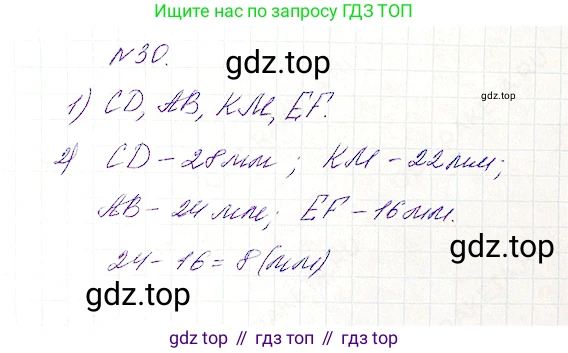 Ищите нас по запросу ГДЗ ТОП
№30.
gdz.top
1) CD, AB, KM, EF.
gdz.top
2) CD - 28мм; KM - 22мм;
AB - 24мм; EF - 16мм.
gdz.top
24 - 16 = 8 (мм)
gdz.top
gdz.top // гдз топ // гдз.топ